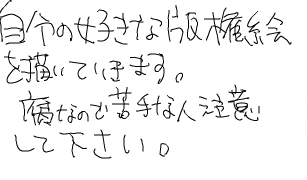 自分の好きな版権絵
を描いていきます。
腐なので苦手な人注意
して下さい。